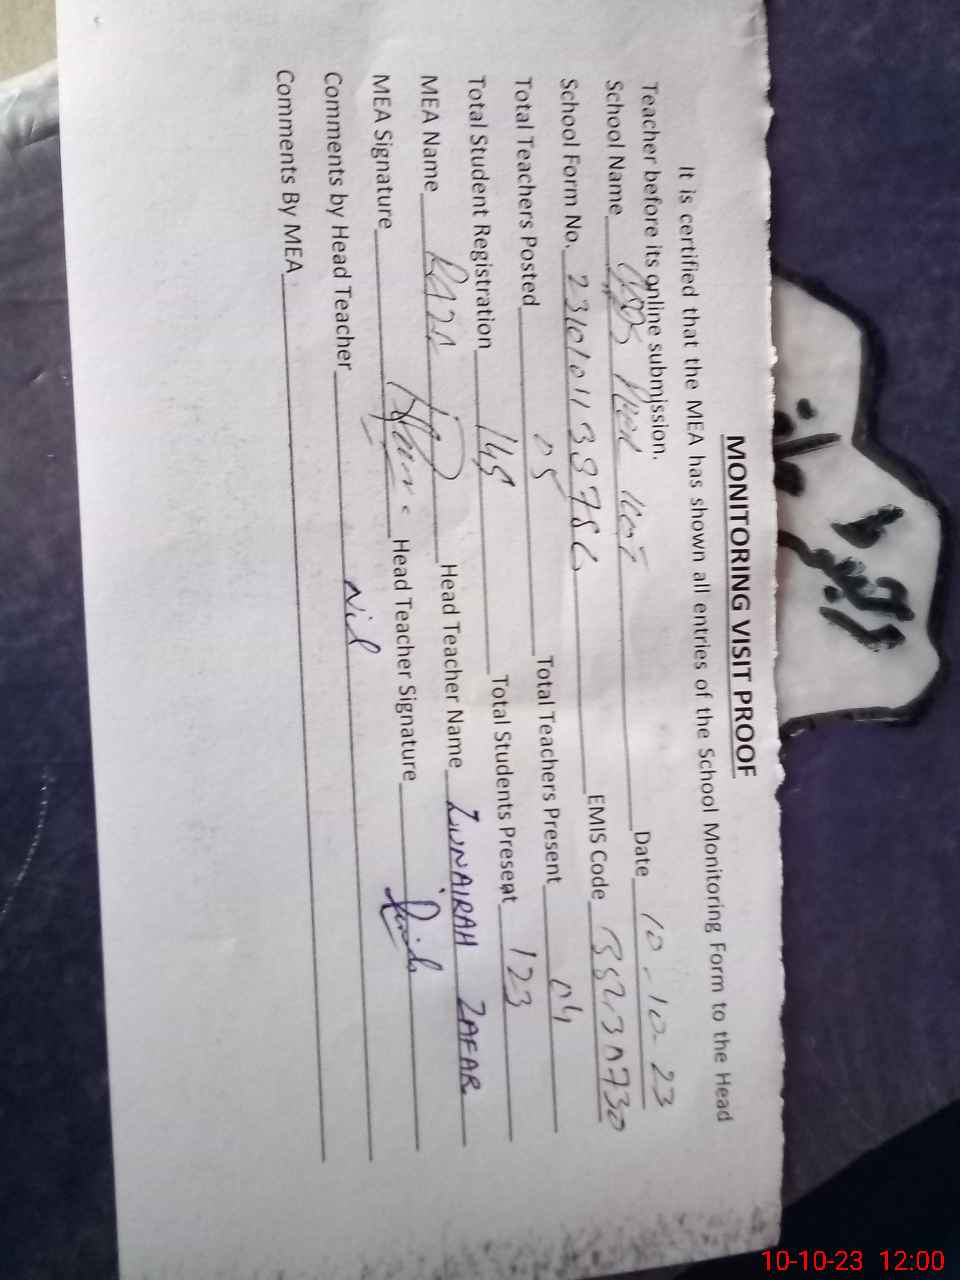 MONITORING VISIT PROOF
It is certified that the MEA has shown all entries of the School Monitoring Form to the Head
Teacher before its online submission.
School Name Date 10-10-23
School Form No. EMIS Code
Total Teachers Posted 05 Total Teachers Present 04
Total Student Registration 145 Total Students Present 123
MEA Name Head Teacher Name ZUNAIRAH ZAFAR
MEA Signature Head Teacher Signature
Comments by Head Teacher Nil
Comments By MEA
10-10-23 12:00